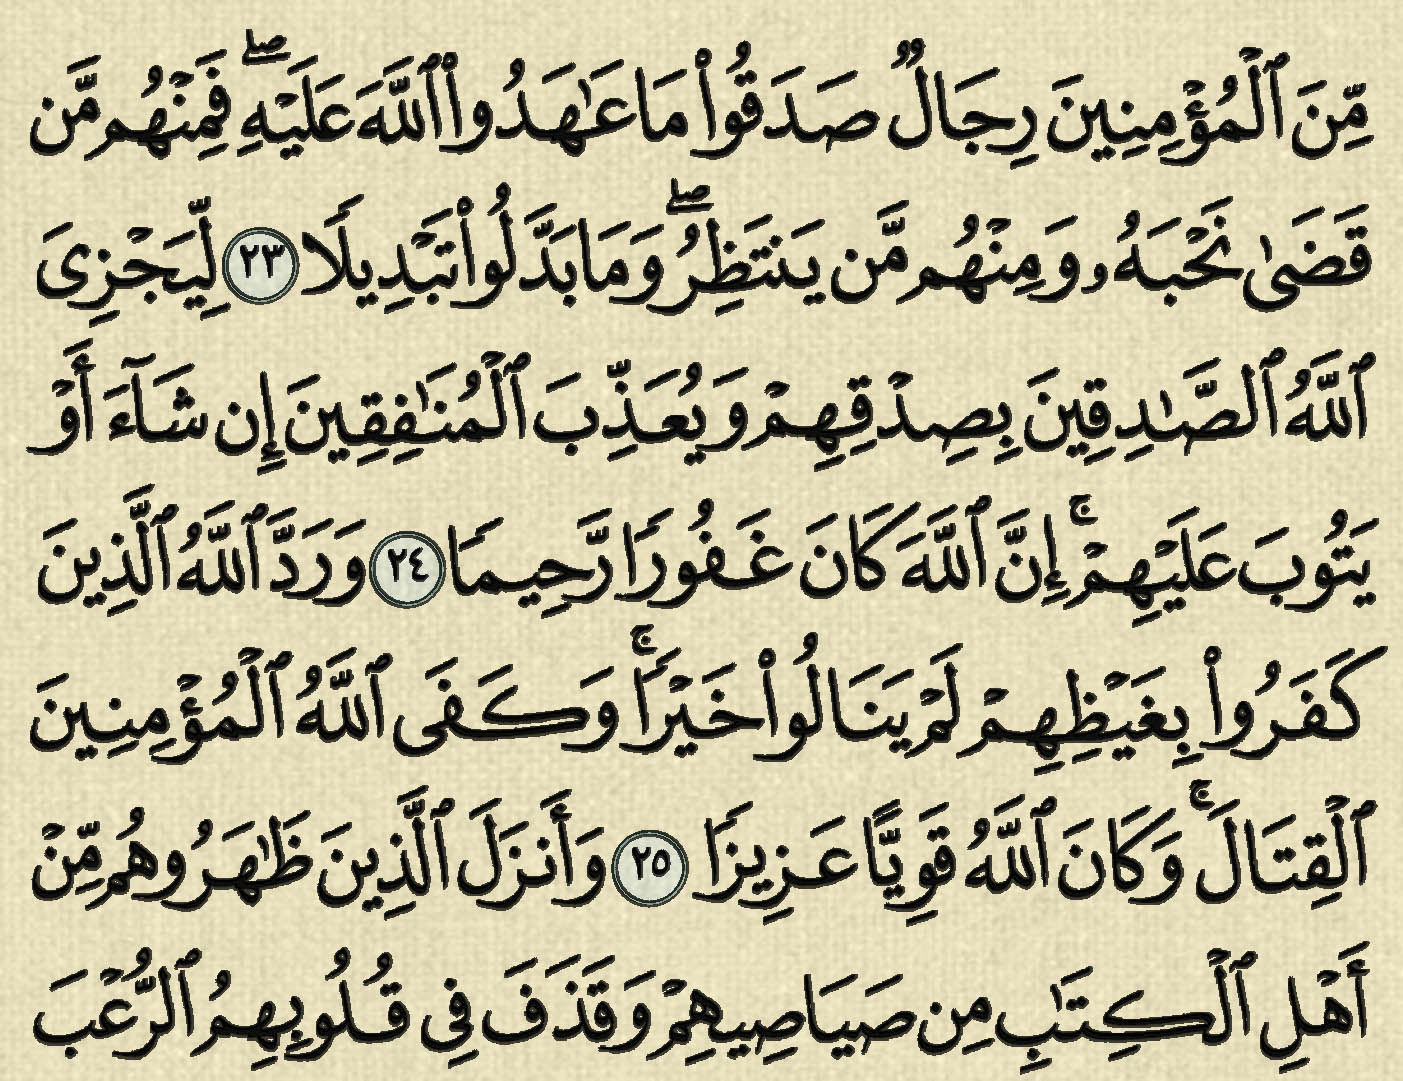 مِّنَ ٱلْمُؤْمِنِينَ رِجَالٌ صَدَقُوا۟ مَا عَـٰهَدُوا۟ ٱللَّهَ عَلَيْهِ ۖ فَمِنْهُم مَّن
قَضَىٰ نَحْبَهُۥ وَمِنْهُم مَّن يَنتَظِرُ ۖ وَمَا بَدَّلُوا۟ تَبْدِيلًا ٢٣ لِّيَجْزِىَ
ٱللَّهُ ٱلصَّـٰدِقِينَ بِصِدْقِهِمْ وَيُعَذِّبَ ٱلْمُنَـٰفِقِينَ إِن شَآءَ أَوْ
يَتُوبَ عَلَيْهِمْ ۚ إِنَّ ٱللَّهَ كَانَ غَفُورًا رَّحِيمًا ٢٤ وَرَدَّ ٱللَّهُ ٱلَّذِينَ
كَفَرُوا۟ بِغَيْظِهِمْ لَمْ يَنَالُوا۟ خَيْرًا ۚ وَكَفَى ٱللَّهُ ٱلْمُؤْمِنِينَ
ٱلْقِتَالَ ۚ وَكَانَ ٱللَّهُ قَوِيًّا عَزِيزًا ٢٥ وَأَنزَلَ ٱلَّذِينَ ظَـٰهَرُوهُم مِّنْ
أَهْلِ ٱلْكِتَـٰبِ مِن صَيَاصِيهِمْ وَقَذَفَ فِى قُلُوبِهِمُ ٱلرُّعْبَ